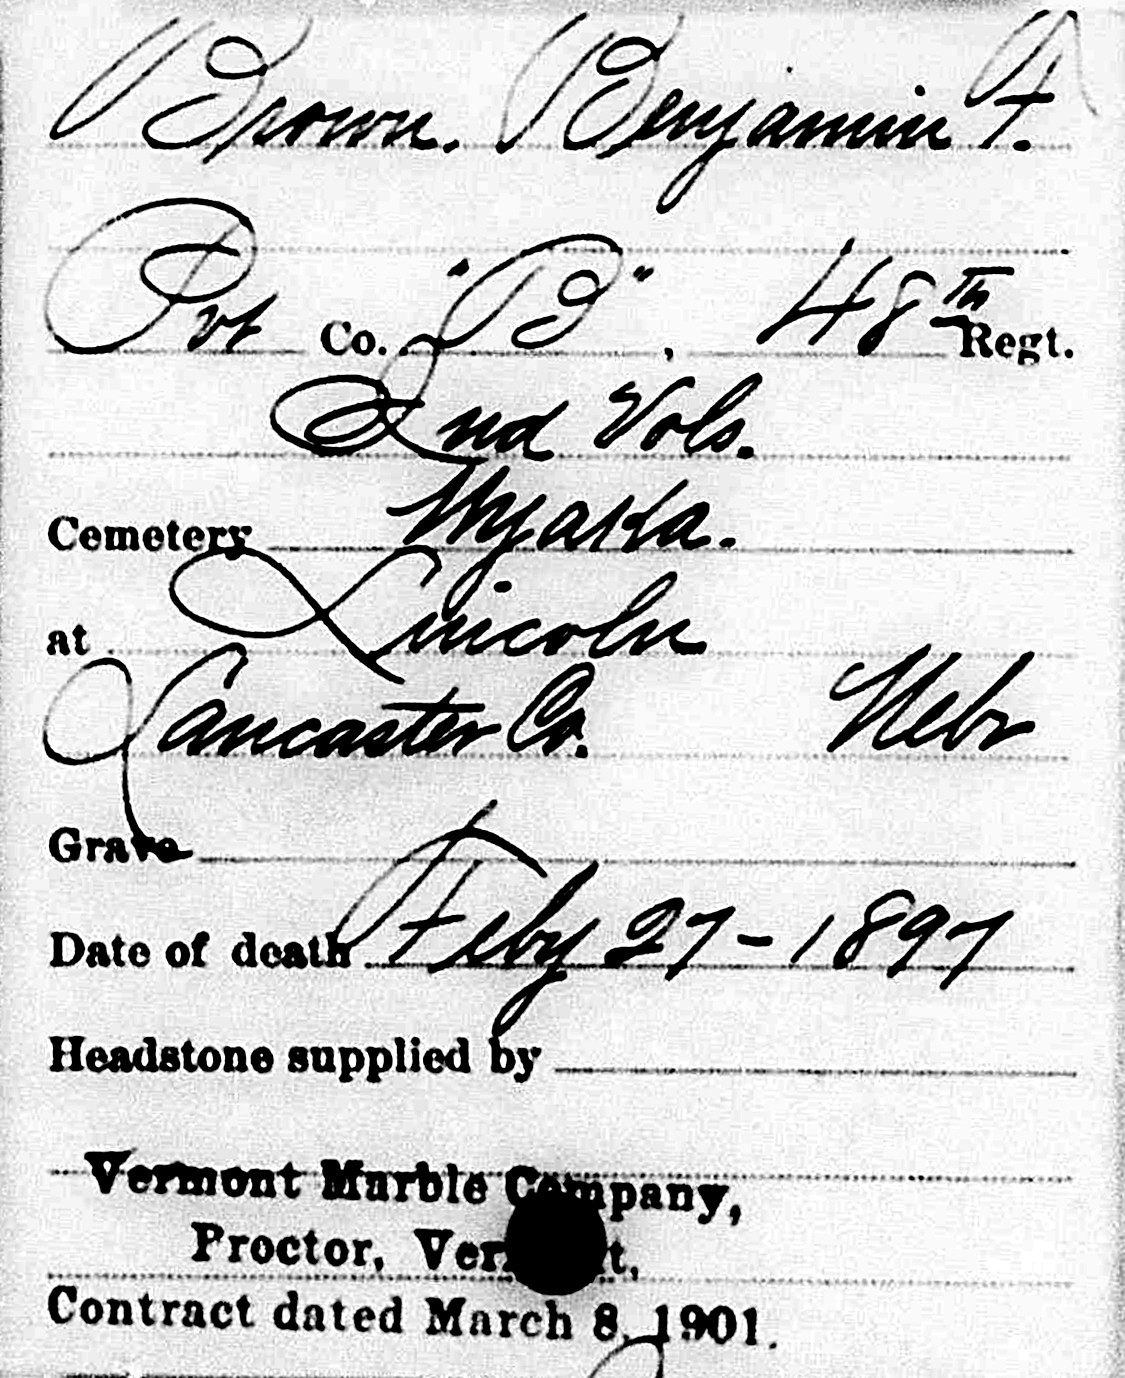 Brown. Benjamin F.
Pvt Co. "B", 48th Regt.
Ind Vols.
Cemetery Wyaka.
at Lincoln
Lancaster Co. Nebr
Grave
Date of death Feby 27-1897
Headstone supplied by
Vermont Marble Company,
Proctor, Vermont,
Contract dated March 8, 1901.